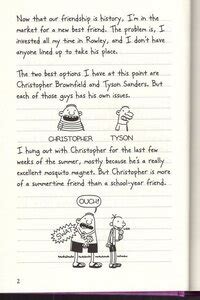 Now that our friendship is history, I'm in the
market for a new best friend. The problem is, I
invested all my time in Rowley, and I don't have
anyone lined up to take his place.
The two best options I have at this point are
Christopher Brownfield and Tyson Sanders. But
each of those guys has his own issues.
CHRISTOPHER
TYSON
I hung out with Christopher for the last few
weeks of the summer, mostly because he's a really
excellent mosquito magnet. But Christopher is more
of a summertime friend than a school-year friend.
OUCH!
2